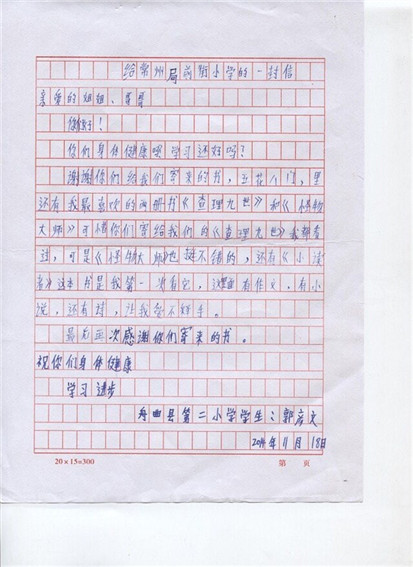 给常州局前街小学的一封信
亲爱的姐姐、哥哥
你们好！
你们身体健康吗 学习还好吗？
谢谢你们给我们寄来的书，五花八门，里
还有我最喜欢的两册书《查理九世》和《怪物
大师》可惜你们寄给我们的《查理九世》我都看
过，可是《怪物大师》也挺不错的，还有《小读
者》这本书是我第一次看它，这里面有作文，有小
说，还有诗，让我爱不释手。
最后再一次感谢你们寄来的书。
祝你们身体健康
学习进步
舟曲县第二小学学生：郭彦文
2014年11月18日
20×15=300
第 页